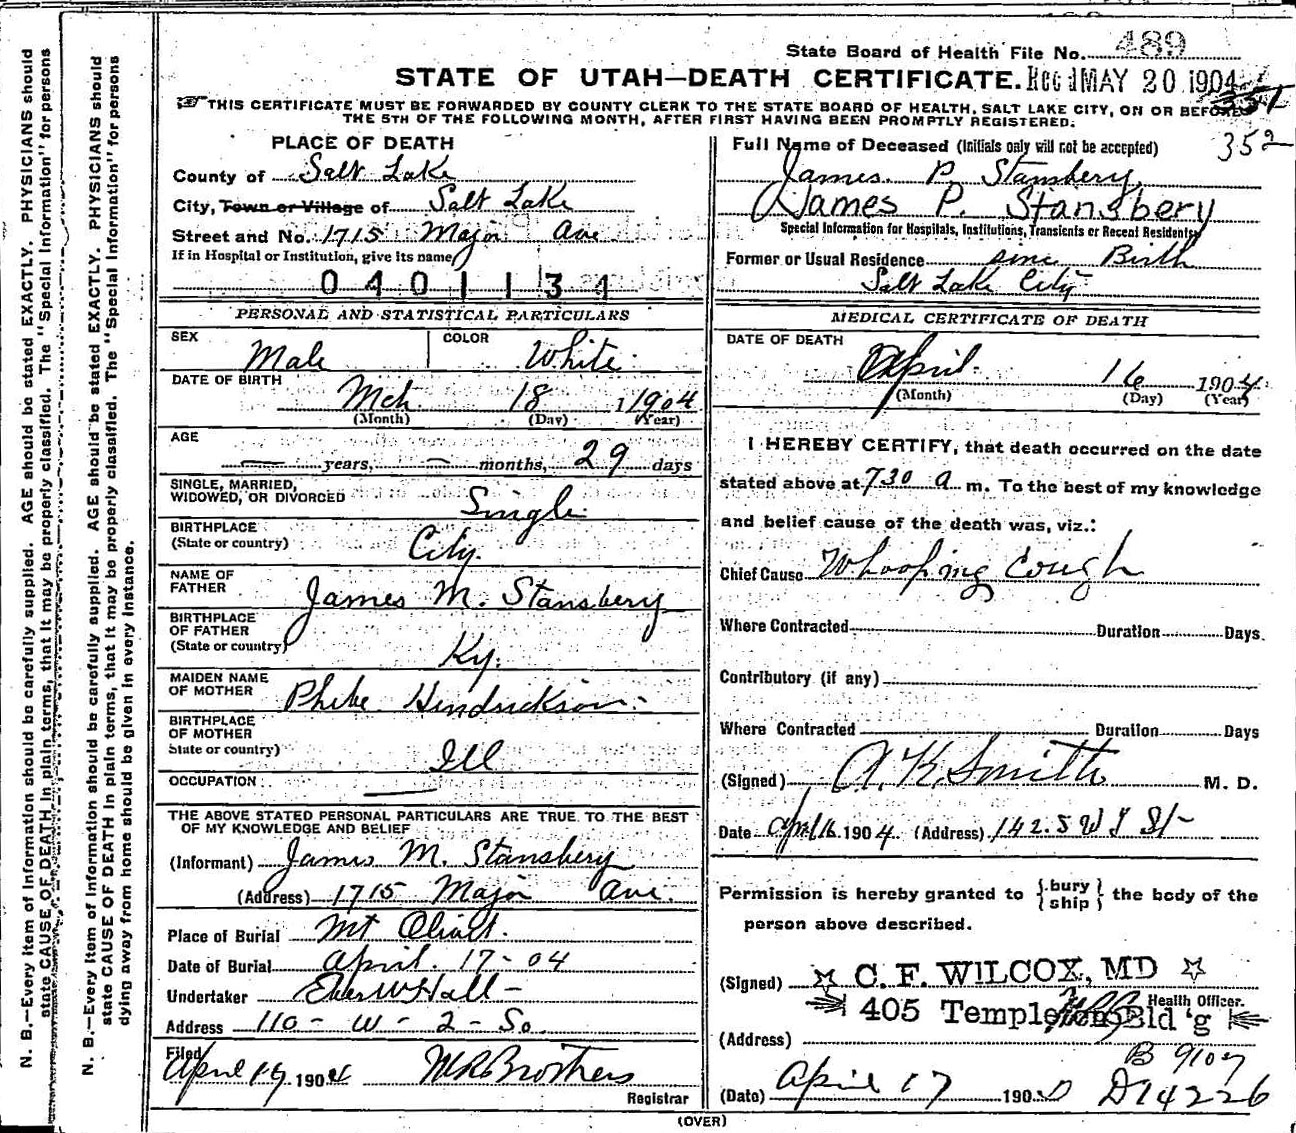 State Board of Health File No. 489
STATE OF UTAH—DEATH CERTIFICATE. Rec'd MAY 20 1904
☞THIS CERTIFICATE MUST BE FORWARDED BY COUNTY CLERK TO THE STATE BOARD OF HEALTH, SALT LAKE CITY, ON OR BEFORE
THE 5TH OF THE FOLLOWING MONTH, AFTER FIRST HAVING BEEN PROMPTLY REGISTERED.
352
PLACE OF DEATH
County of Salt Lake
City, Town or Village of Salt Lake
Street and No. 1715 Major Ave
If in Hospital or Institution, give its name
0401134
Full Name of Deceased (Initials only will not be accepted)
James. P. Stansbery
James P. Stansbery
Special Information for Hospitals, Institutions, Transients or Recent Residents
Former or Usual Residence since Birth
Salt Lake City
PERSONAL AND STATISTICAL PARTICULARS
SEX Male COLOR White
DATE OF BIRTH Mch 18 1904
(Month) (Day) (Year)
AGE — years, — months, 29 days
SINGLE, MARRIED,
WIDOWED, OR DIVORCED Single
BIRTHPLACE
(State or country) City.
NAME OF
FATHER James M. Stansbery
BIRTHPLACE
OF FATHER
(State or country) Ky.
MAIDEN NAME
OF MOTHER Phebe Hendrickson
BIRTHPLACE
OF MOTHER
State or country) Ill
OCCUPATION —
THE ABOVE STATED PERSONAL PARTICULARS ARE TRUE TO THE BEST
OF MY KNOWLEDGE AND BELIEF
(Informant) James M. Stansbery
(Address) 1715 Major Ave.
Place of Burial Mt Olivet.
Date of Burial April. 17-04
Undertaker Eber W Hall-
Address 110-W-2-So.
Filed April 19 1904 Registrar
MEDICAL CERTIFICATE OF DEATH
DATE OF DEATH
April 16 1904
(Month) (Day) (Year)
I HEREBY CERTIFY, that death occurred on the date
stated above at 730 a m. To the best of my knowledge
and belief cause of the death was, viz.:
Chief Cause Whooping Cough
Where Contracted Duration Days.
Contributory (if any)
Where Contracted Duration Days
(Signed) A K Smith M. D.
Date April 16 1904 (Address)
Permission is hereby granted to {bury
ship} the body of the
person above described.
(Signed) ☆ C. F. WILCOX, MD ☆
Health Officer.
405 Templeton Bld'g
(Address)
B 9107
(Date) April 17 190 D14226
(OVER)
N. B.—Every item of information should be carefully supplied. AGE should be stated EXACTLY. PHYSICIANS should
state CAUSE OF DEATH in plain terms, that it may be properly classified. The "Special Information" for persons
N. B.—Every item of information should be carefully supplied. AGE should be stated EXACTLY. PHYSICIANS should
state CAUSE OF DEATH in plain terms, that it may be properly classified. The "Special Information" for persons
dying away from home should be given in every instance.